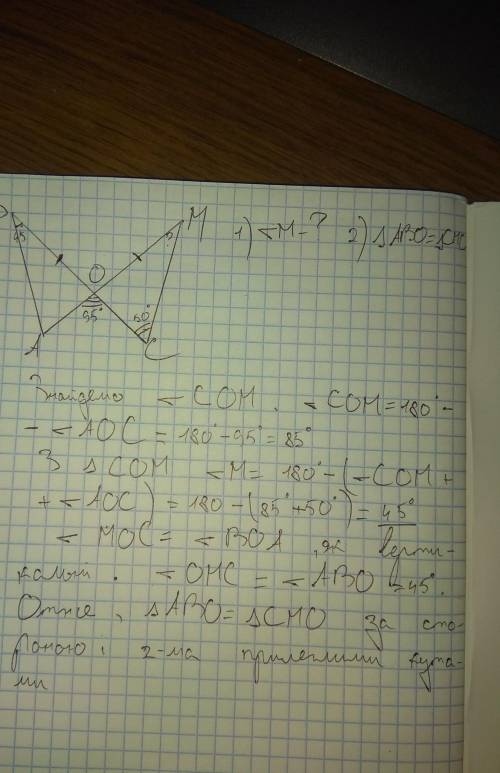 M 1) ∢M-? 2) ΔABO=ΔCMO
45
O
50°
95°
A C
Знайдемо ∢COM. ∢COM=180°-
-∢AOC=180°-95°=85°
З ΔCOM ∢M=180°-(∢COM+
+∢AOC)=180-(85°+50°)=45°
∢MOC=∢BOA, як верти-
кальні. ∢OMC=∢ABO=45°.
Отже, ΔABO=ΔCMO за сто-
роною і 2-ма прилеглими кута-
ми